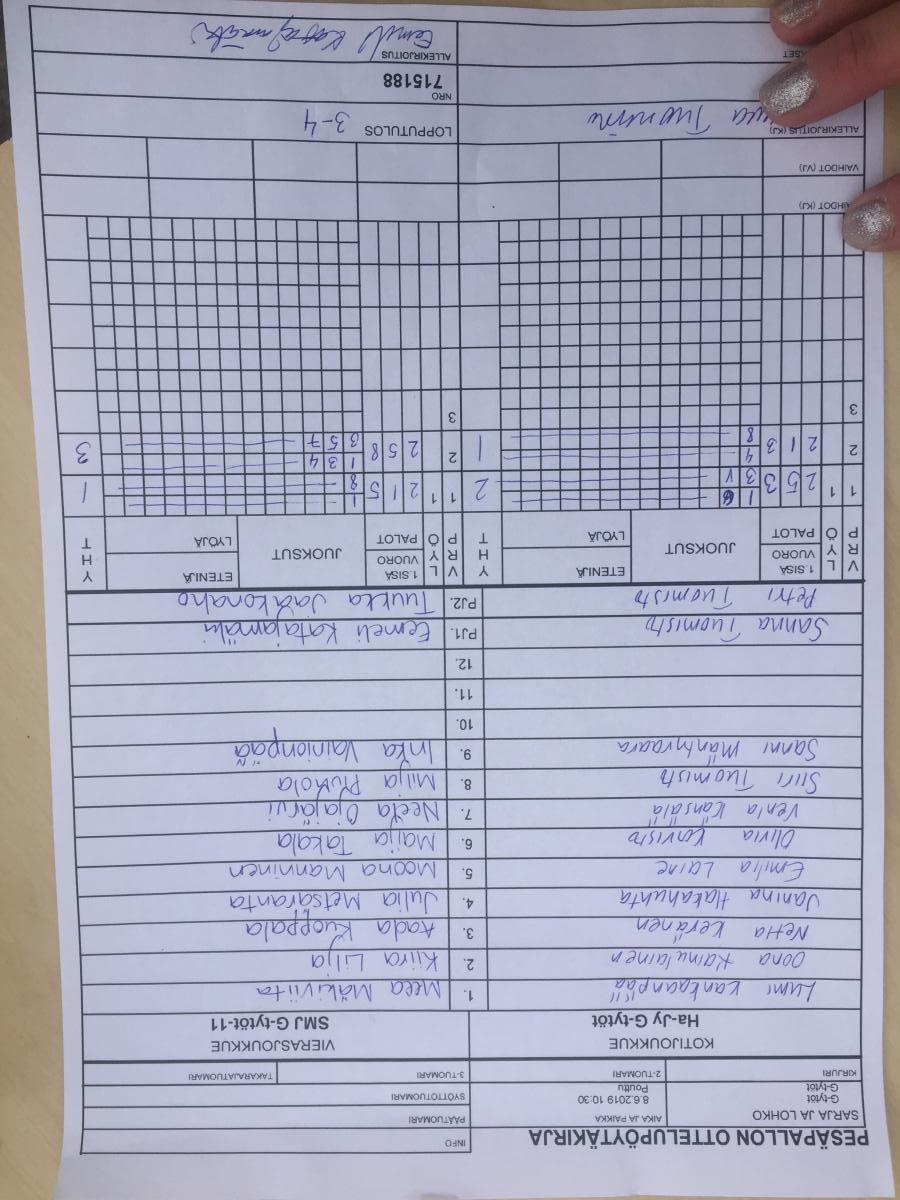 PESÄPALLON OTTELUPÖYTÄKIRJA
INFO
SARJA JA LOHKO
G-tytöt
G-tytöt
AIKA JA PAIKKA
8.6.2019 10:30
Pouttu
PÄÄTUOMARI
SYÖTTÖTUOMARI
KIRJURI
2-TUOMARI
3-TUOMARI
TAKARAJATUOMARI
KOTIJOUKKUE
Ha-Jy G-tytöt
VIERASJOUKKUE
SMJ G-tytöt-11
Lumi Kankaanpää 1. Meea Mäkiviita
Oona Kainulainen 2. Kiira Lilja
Netta Keränen 3. Aada Kuoppala
Janina Hakahuhta 4. Julia Metsäranta
Emilia Laine 5. Moona Manninen
Olivia Koivisto 6. Maija Takala
Venla Känsälä 7. Neela Ojajärvi
Siiri Tuomisto 8. Milja Piukola
Sanni Mantyvaara 9. Inka Vainionpää
10.
11.
12.
Sanna Tuomisto PJ1. Eemeli Katajamäki
Petri Tuomisto PJ2. Tuukka Jaakonaho
P R V L Y Ö 1.SISÄ VUORO PALOT JUOKSUT ETENIJÄ LYÖJÄ Y H T P R V L Y Ö 1.SISÄ VUORO PALOT JUOKSUT ETENIJÄ LYÖJÄ Y H T
1 1 2 5 3 1 6 2 1 1 2 1 5 1 1
3 V 8
2 2 1 3 4 1 2 2 5 8 1 3 4 3
8 3 5 7
3 3
VAIHDOT (KJ)
VAIHDOT (VJ)
ALLEKIRJOITUS (KJ)
LOPPUTULOS 3-4
NRO
715188
ALLEKIRJOITUS
Eemeli Katajamäki